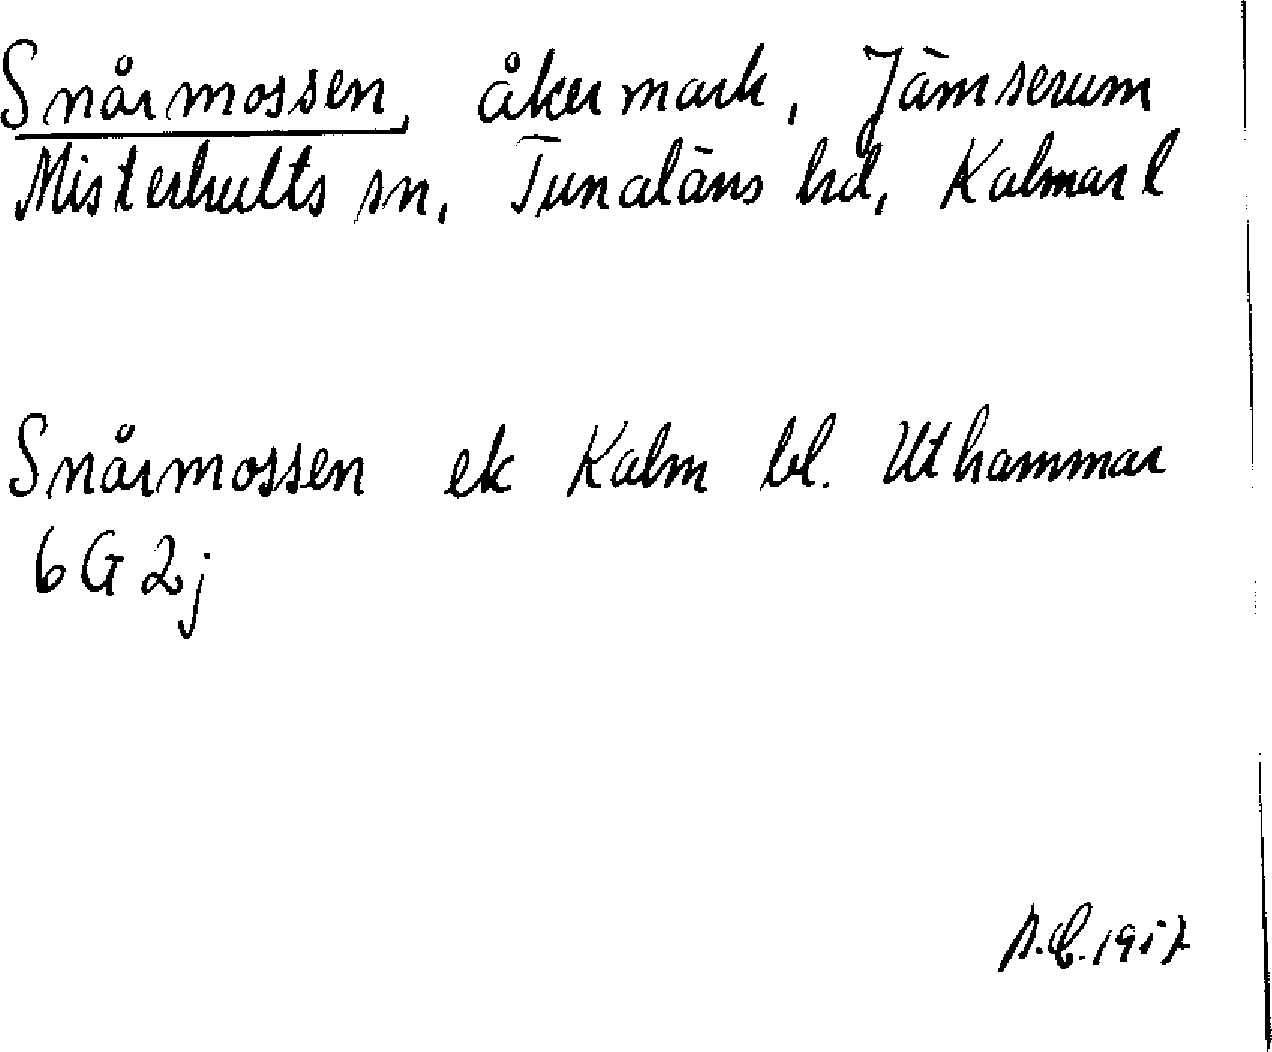 Snårmossen, åkermark, Jämserum
Misterhults sn, Tunaläns hd, Kalmar l
Snårmossen ek Kalm bl. Uthammar
6 G 2j